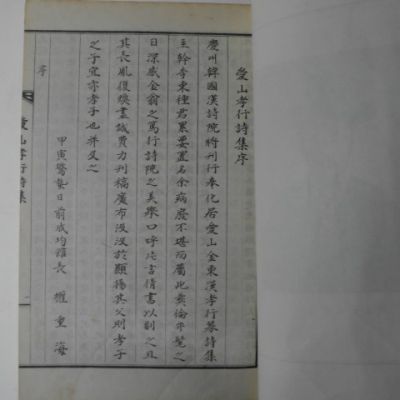 愛山孝行詩集序
慶州韓國漢詩院將刊行奉化居愛山金東漢孝行募詩集
主幹李東徑君累要置名余病廢不堪而屬此彛倫牟髦之
日深感金翁之篤行詩院之美擧口呼此言倩書以副之且
其長胤復煥盡誠費力刊稿廣布汲汲於顯揚其父則孝子
之子宜亦孝子也并及之
甲寅驚蟄日前成均館長 權重海 序
序
愛山孝行詩集